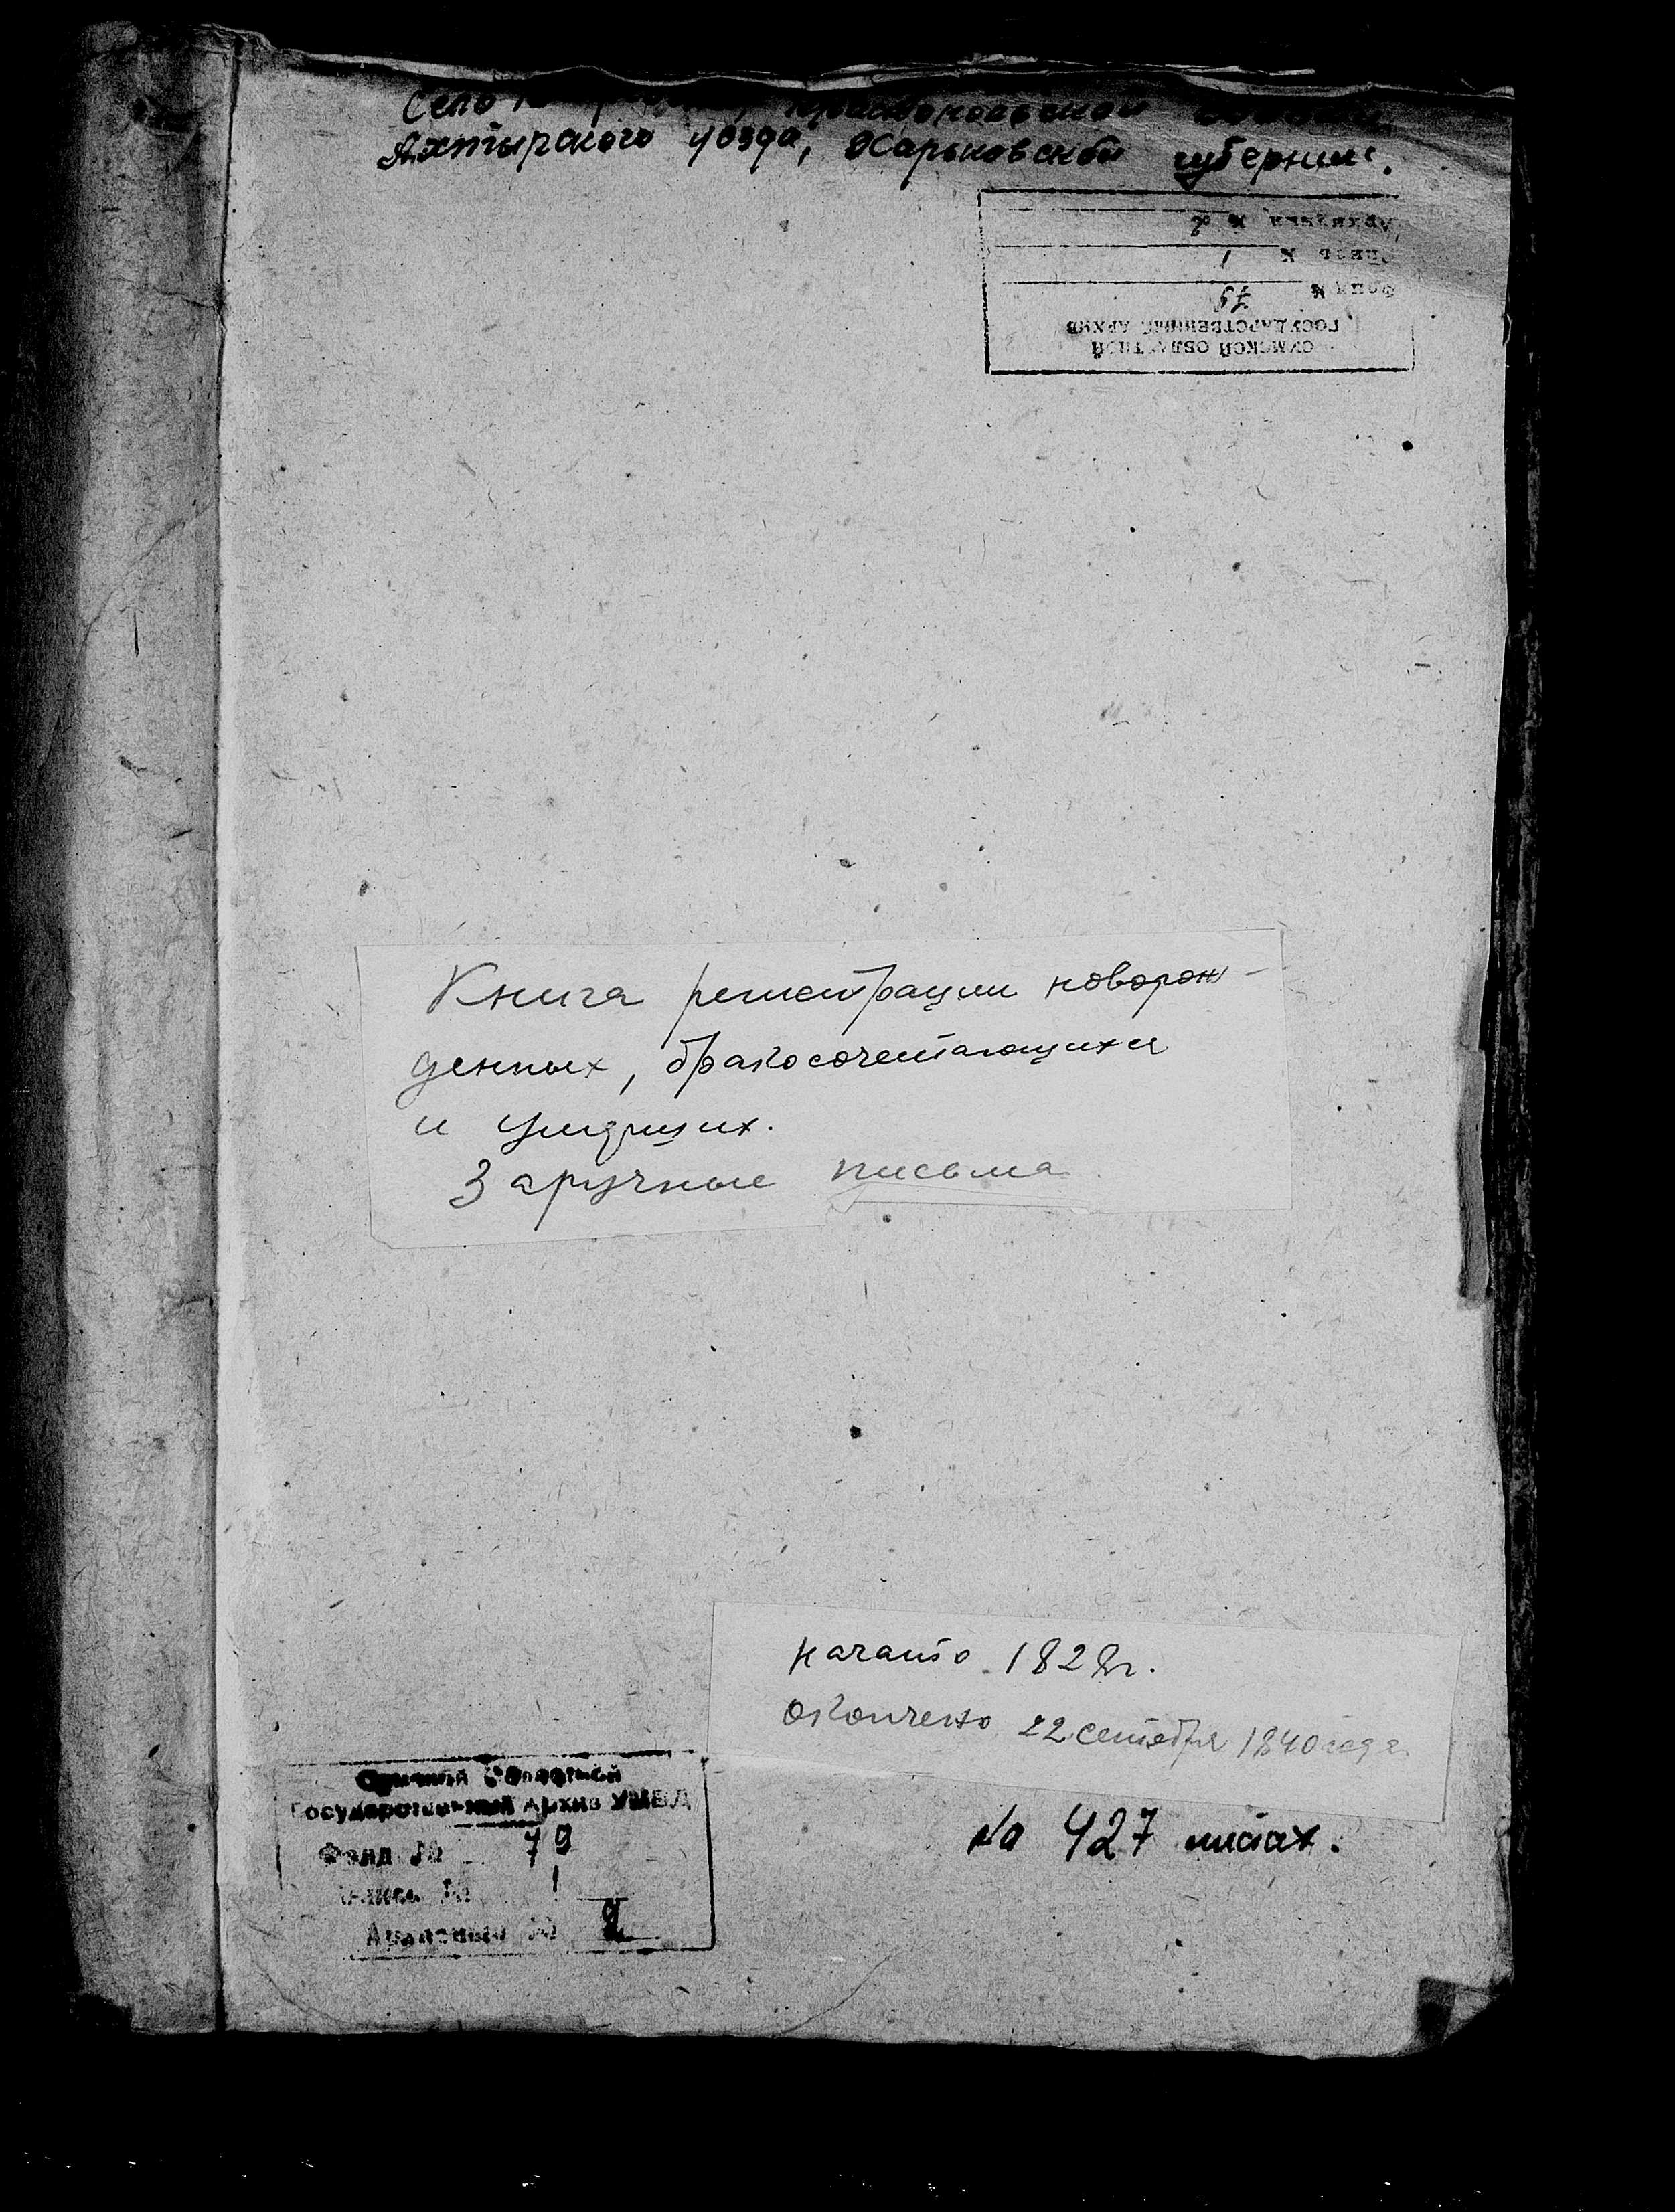 Село
Ахтырского уезда, Харьковской губернии.
Архивный № 2
Опись № 1
Фонд № 79
ГОСУДАРСТВЕННЫЙ АРХИВ
СУМСКОЙ ОБЛАСТНОЙ
Книга регистрации новорож-
денных, бракосочетающихся
и умерших.
Заручные письма
начато 1828г.
Окончено 22 сентября 1840 года
На 427 листах.
Сумской Областной
Государственный Архив УМВД
Фонд № 79
Опись № 1
Архивный № 2